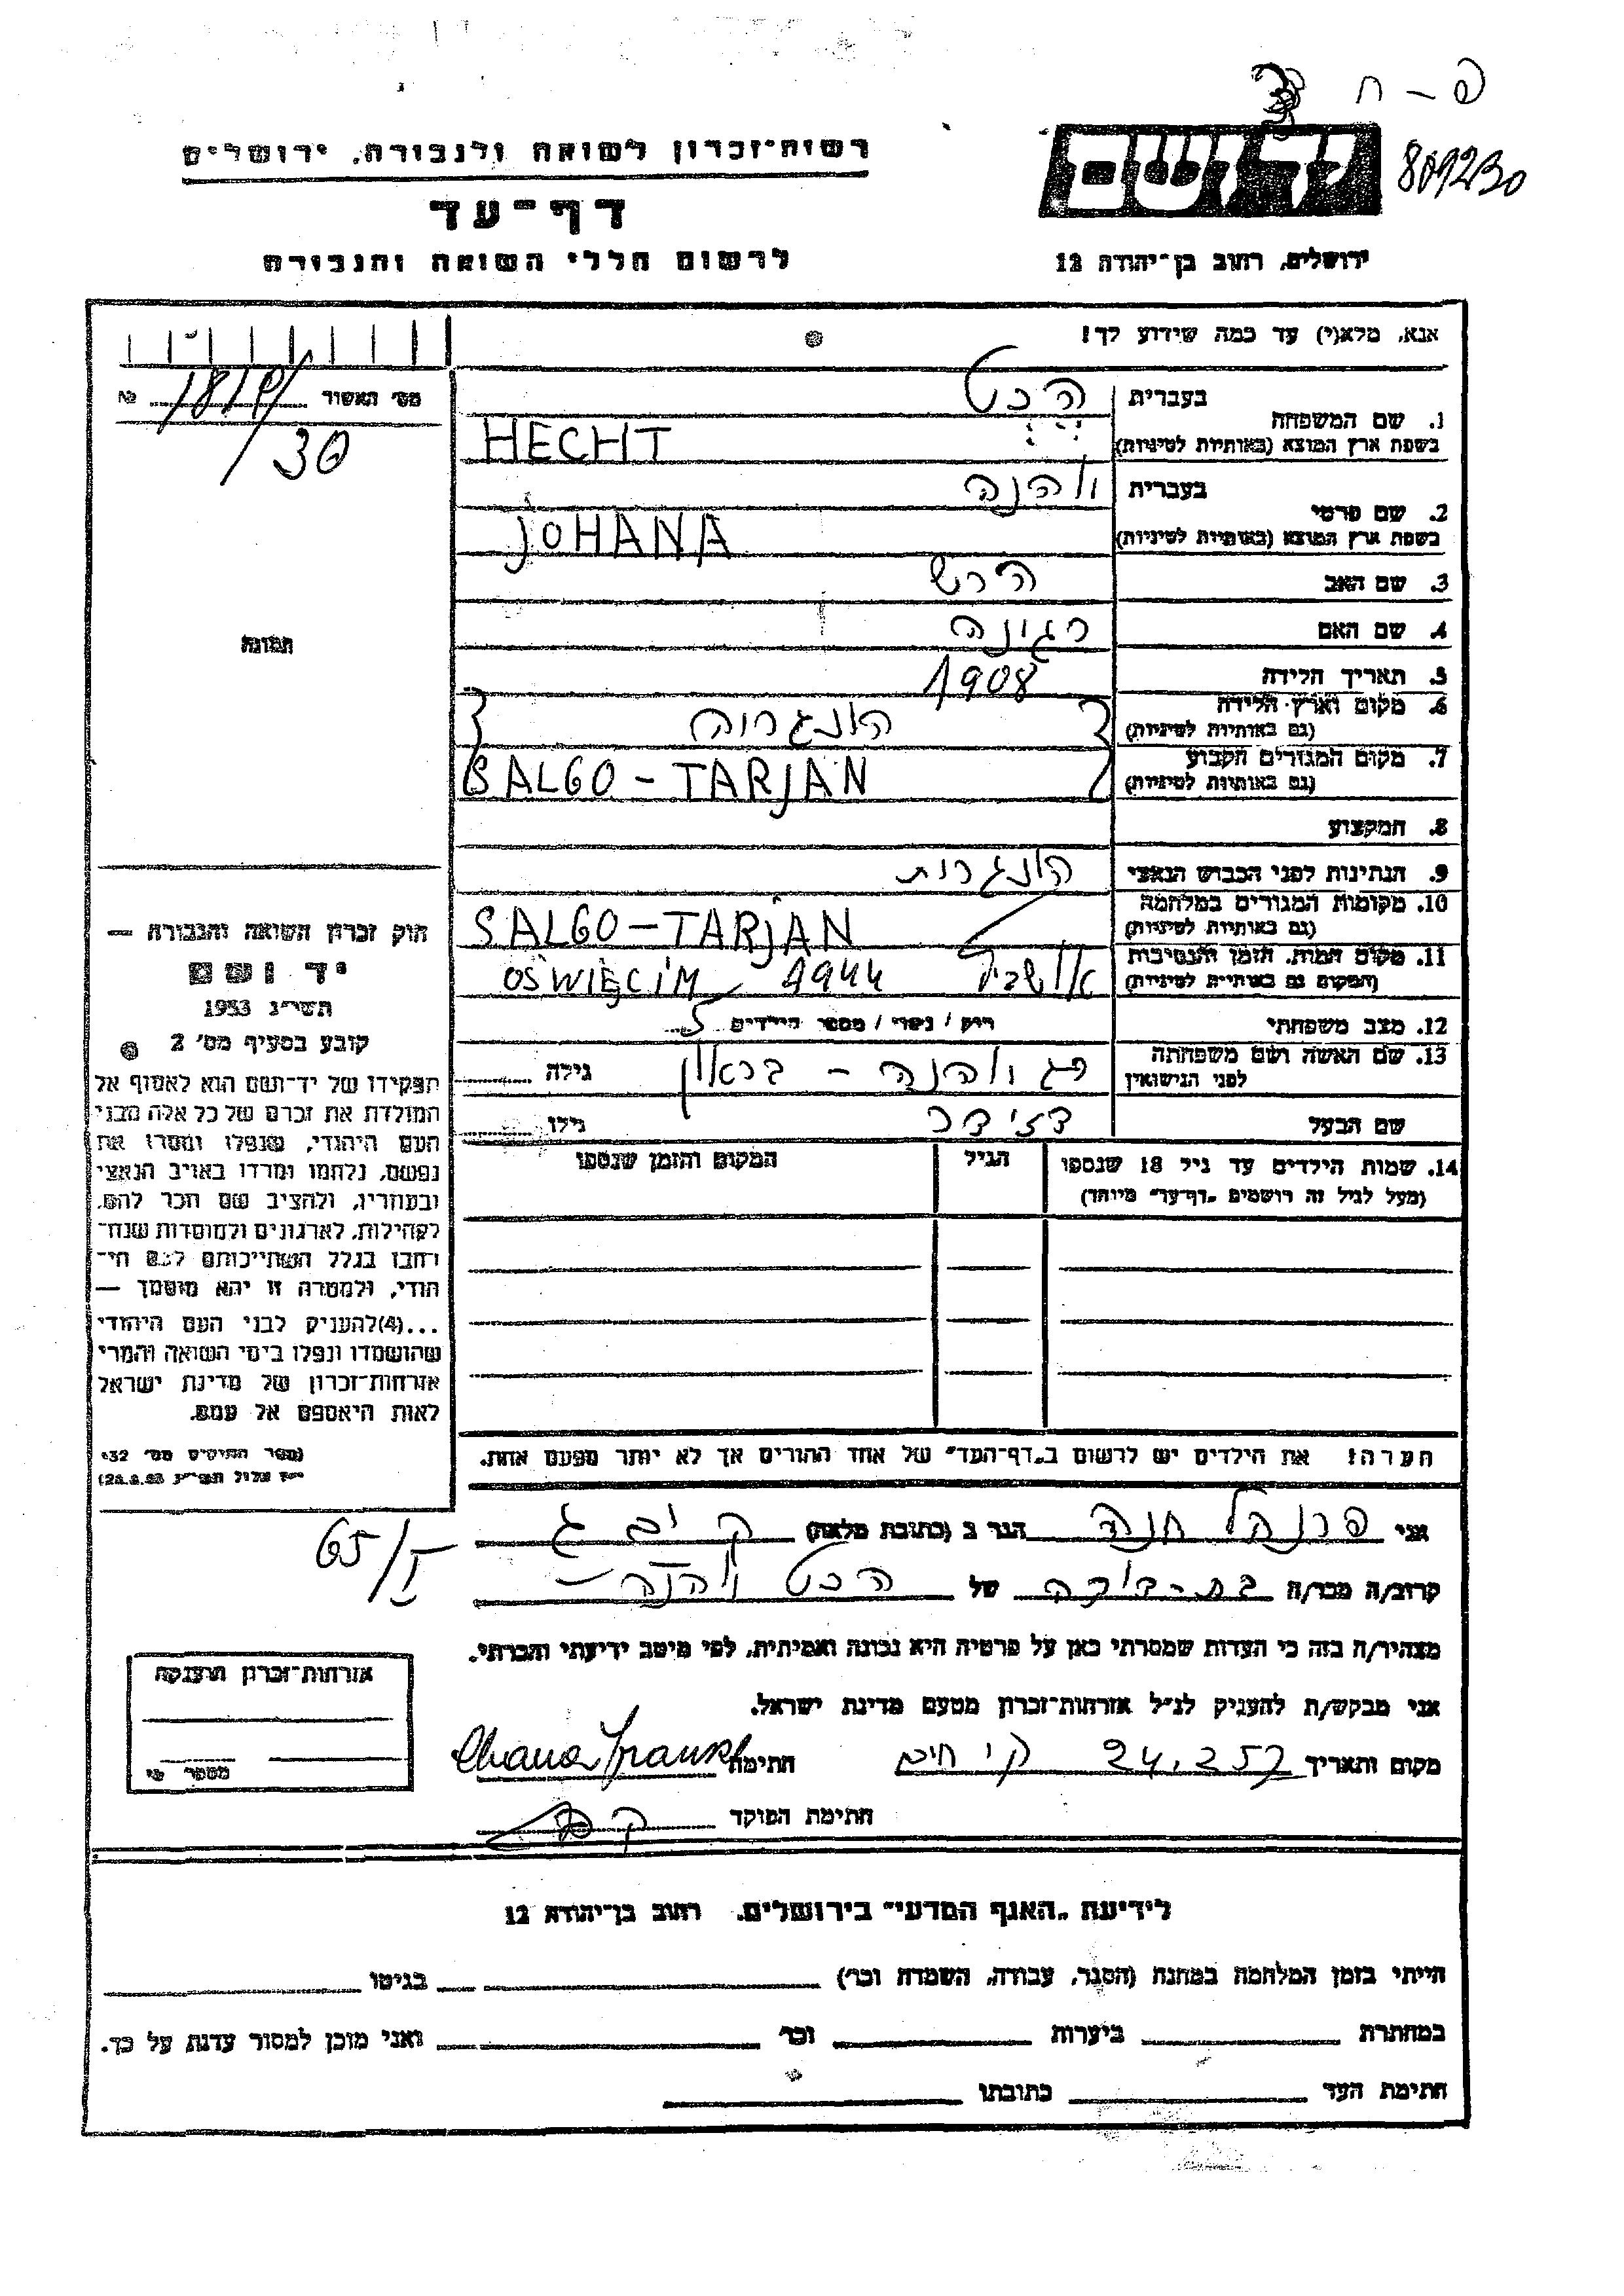 פ - ח
809230
רשות-זכרון לשואה ולגבורה, ירושלים
יד ושם
דף-עד
לרשום חללי השואה והגבורה
ירושלים, רחוב בן-יהודה 12
אנא, מלא(י) עד כמה שידוע לך!
מס' האשור № 1819/30
1. שם המשפחה
בעברית הכט
בשפת ארץ המוצא (באותיות לטיניות) HECHT
2. שם פרטי
בעברית יוהנה
בשפת ארץ המוצא (באותיות לטיניות) JOHANA
3. שם האב הרש
4. שם האם רגינה
5. תאריך הלידה 1908
6. מקום וארץ הלידה (גם באותיות לטיניות) הונגריה
7. מקום המגורים הקבוע (גם באותיות לטיניות) SALGO-TARJAN
8. המקצוע
9. הנתינות לפני הכבוש הנאצי הונגרית
10. מקומות המגורים במלחמה (גם באותיות לטיניות) SALGO-TARJAN
11. מקום המות, הזמן והנסיבות (המקום גם באותיות לטיניות) אושביץ OŚWIĘCIM 1944
12. מצב משפחתי רווק / נשוי / מספר הילדים
13. שם האשה ושם משפחתה לפני הנישואין יוהנה - בראון גילה
שם הבעל דזידר גילו
14. שמות הילדים עד גיל 18 שנספו הגיל המקום והזמן שנספו
(מעל לגיל זה רושמים "דף-עד" מיוחד)
הערה! את הילדים יש לרשום ב"דף-העד" של אחד ההורים אך לא יותר מפעם אחת.
תמונה
חוק זכרון השואה והגבורה —
יד ושם
תשי"ג 1953
קובע בסעיף מס' 2
תפקידו של יד-ושם הוא לאסוף אל
המולדת את זכרם של כל אלה מבני
העם היהודי, שנפלו ומסרו את
נפשם, נלחמו ומרדו באויב הנאצי
ובעוזריו, ולהציב שם וזכר להם,
לקהילות, לארגונים ולמוסדות שנח-
רבו בגלל השתייכותם לעם הי-
הודי, ולמטרה זו יהא מוסמך —
...(4)להעניק לבני העם היהודי
שהושמדו ונפלו בימי השואה והמרי
אזרחות-זכרון של מדינת ישראל
לאות היאספם אל עמם.
(ספר החוקים מס' 132
י"ז אלול תשי"ג 28.8.53)
אני פרנקל חנה הגר ב (כתובת מלאה) ק. ים ג 65/I
קרוב/ה מכר/ה בת-דודה של הכט יוהנה
מצהיר/ה בזה כי העדות שמסרתי כאן על פרטיה היא נכונה ואמיתית, לפי מיטב ידיעתי והכרתי.
אני מבקש/ת להעניק לנ"ל אזרחות-זכרון מטעם מדינת ישראל.
מקום ותאריך 24.2.57 ק. חיים חתימה Chana Frankl
חתימת הפוקד
אזרחות-זכרון הוענקה
מספר כי
לידיעת "האגף המדעי" בירושלים, רחוב בן-יהודה 12
הייתי בזמן המלחמה במחנה (הסגר, עבודה, השמדה וכו') בגיטו
במחתרת ביערות וכו' ואני מוכן למסור עדות על כך.
חתימת העד כתובתו